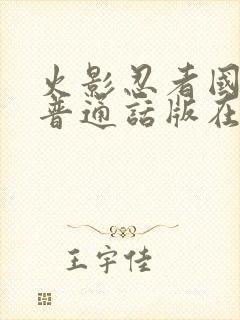 火影忍者国
普通話版在
王宇佳